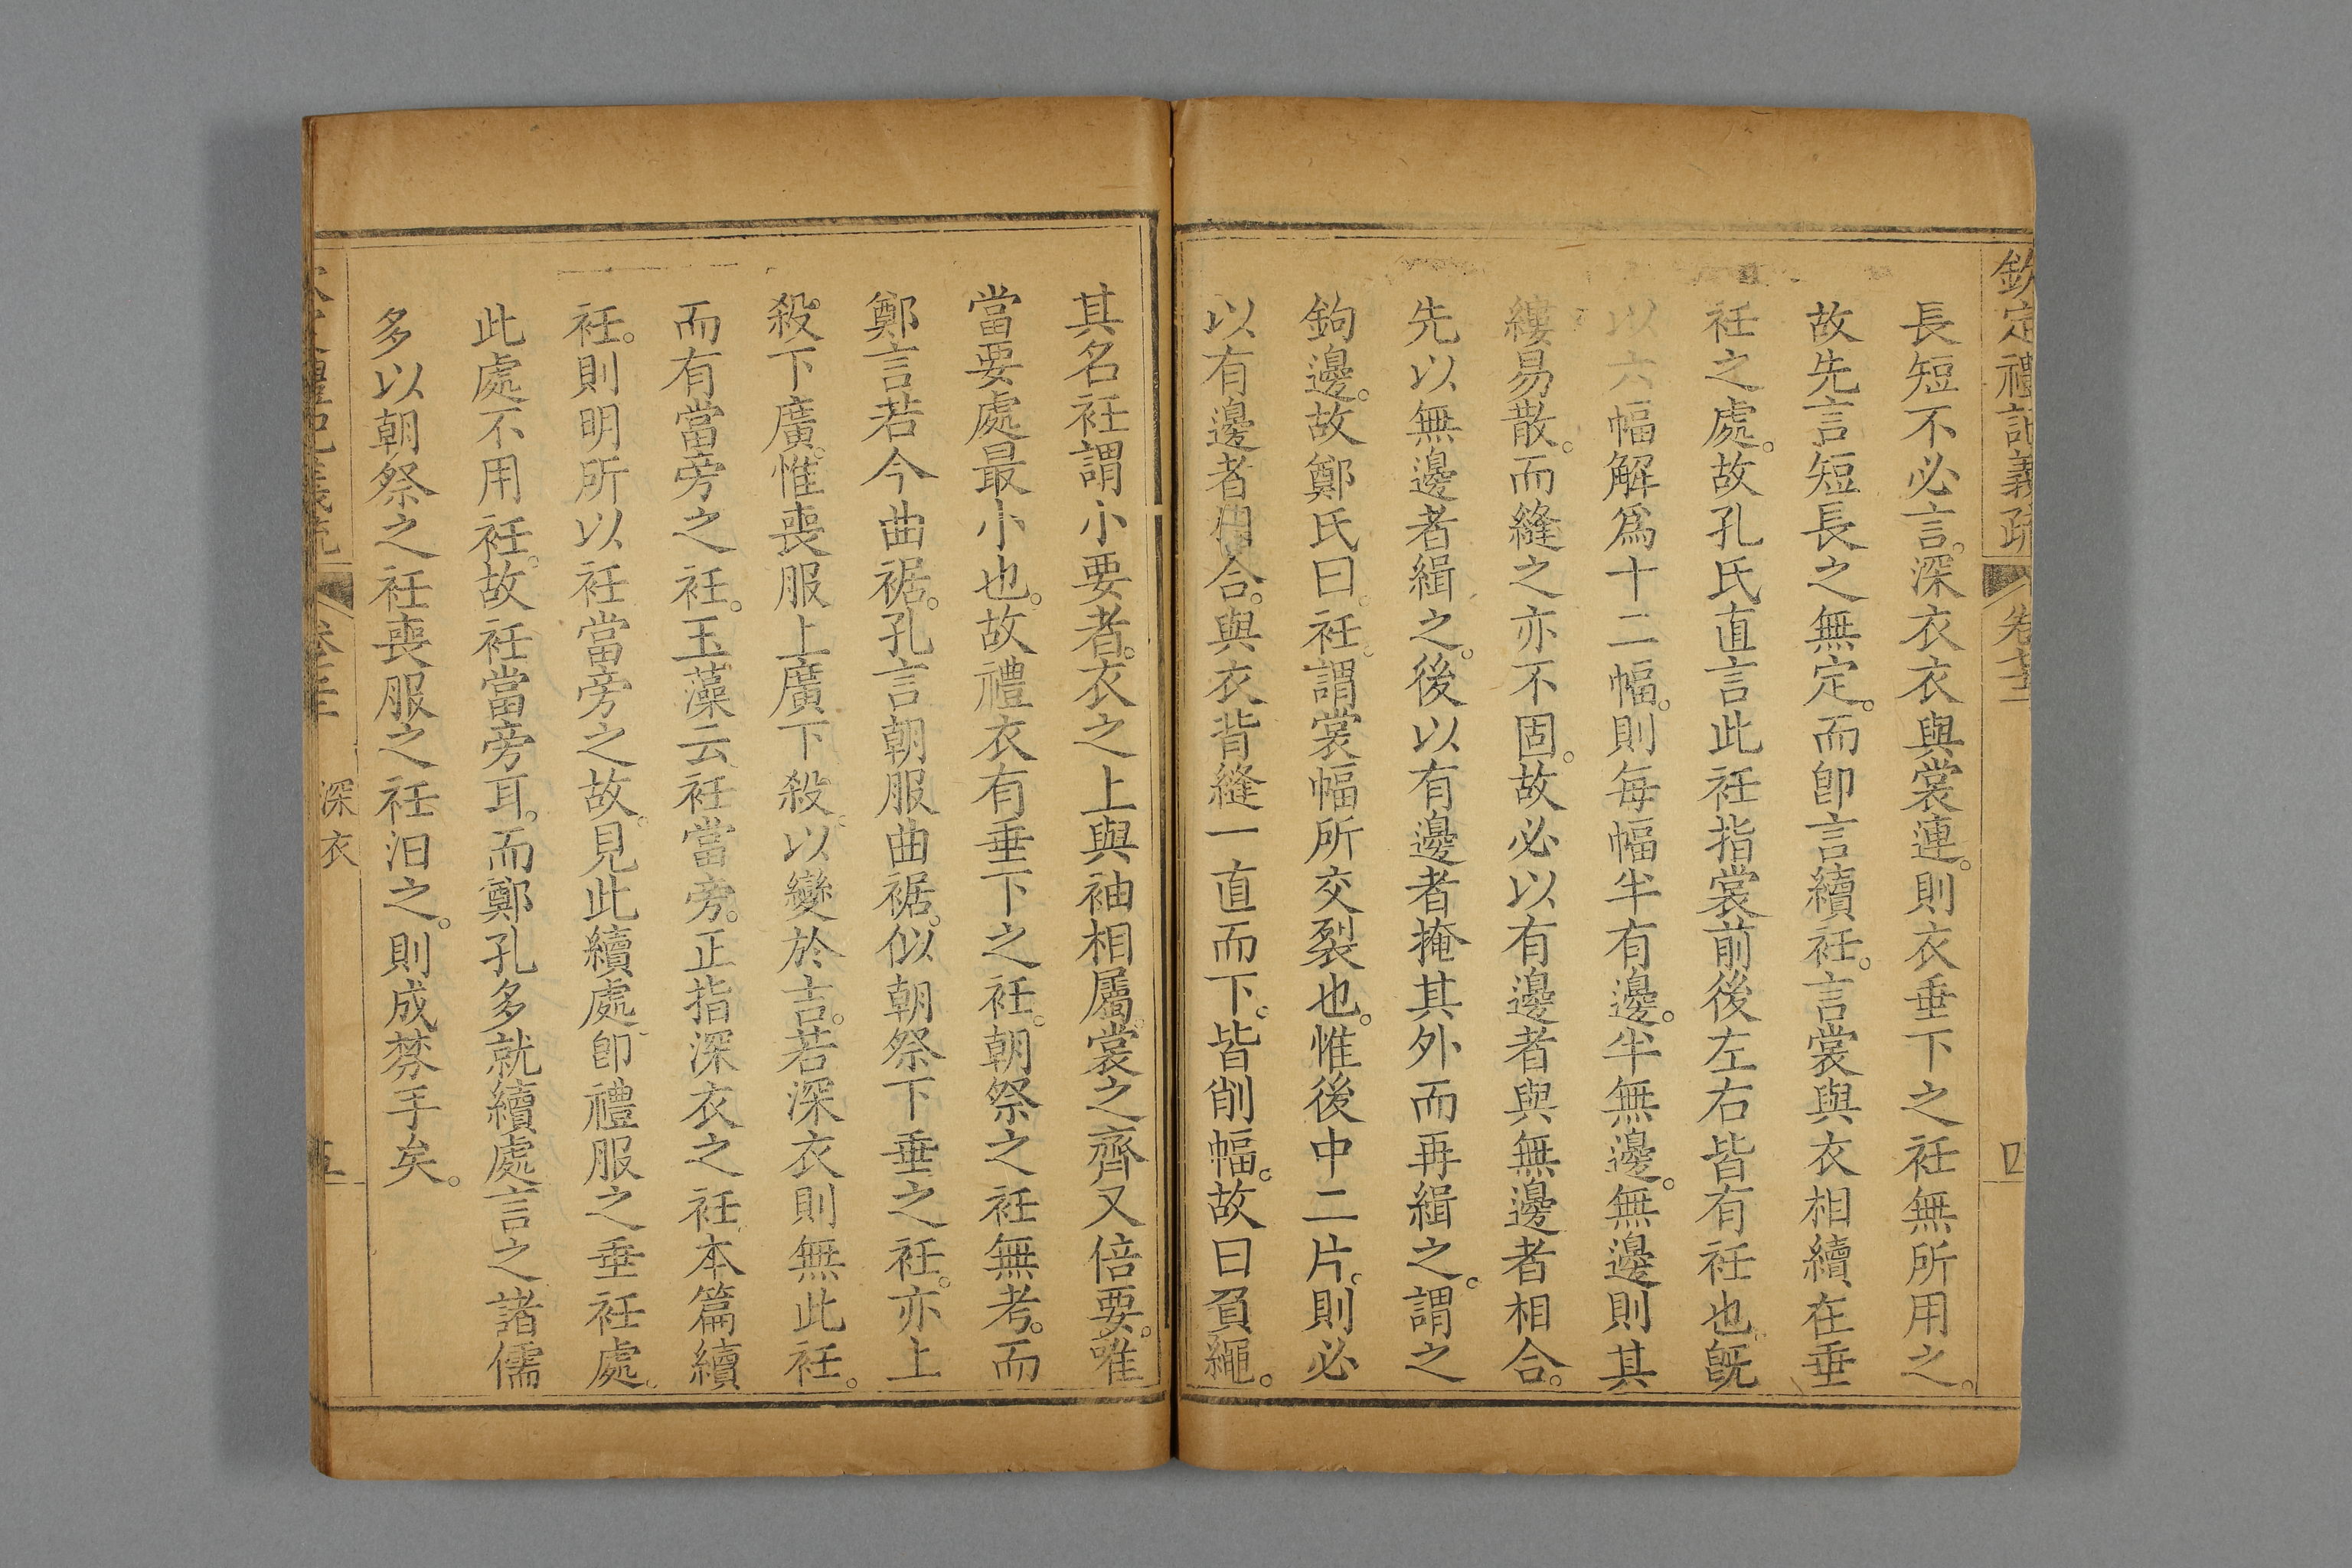 欽定禮記義疏 卷 四
長短不必言。深衣衣與裳連。則衣垂下之衽無所用之。
故先言短長之無定。而卽言續衽。言裳與衣相續在垂
衽之處。故孔氏直言此衽指裳前後左右皆有衽也。旣
以六幅解爲十二幅。則每幅半有邊。半無邊。無邊則其
縷易散。而縫之亦不固。故必以有邊者與無邊者相合。
先以無邊者緝之。後以有邊者掩其外而再緝之。謂之
鉤邊。故鄭氏曰。衽。謂裳幅所交裂也。惟後中二片。則必
以有邊者相合。與衣背縫一直而下。皆削幅。故曰負繩。
其名衽謂小要者。衣之上與袖相屬。裳之齊又倍要。唯
當要處最小也。故禮衣有垂下之衽。朝祭之衽無考。而
鄭言若今曲裾。孔言朝服曲裾。似朝祭下垂之衽。亦上
殺下廣。惟喪服上廣下殺。以變於吉。若深衣則無此衽。
而有當旁之衽。玉藻云衽當旁。正指深衣之衽。本篇續
衽。則明所以衽當旁之故。見此續處。卽禮服之垂衽處。
此處不用衽。故衽當旁耳。而鄭孔多就續處言之諸儒
多以朝祭之衽喪服之衽汩之。則成棼手矣。
禮記義疏 深衣 五